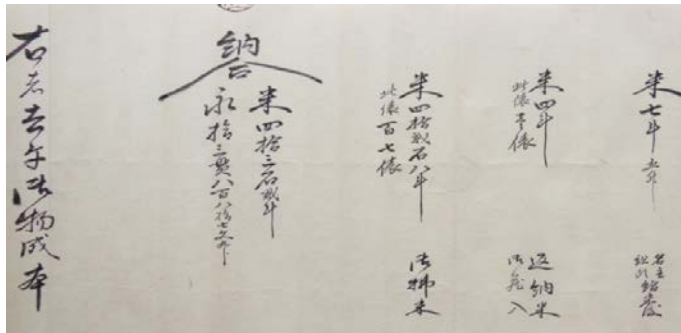 米七斗五升
名主
米四斗
此俵壱俵
返納米
御蔵入
米四拾弐石八斗
此俵百七俵
御払米
納合
米四拾三石弐斗
永拾三貫八百八拾七文
右者去午御物成本